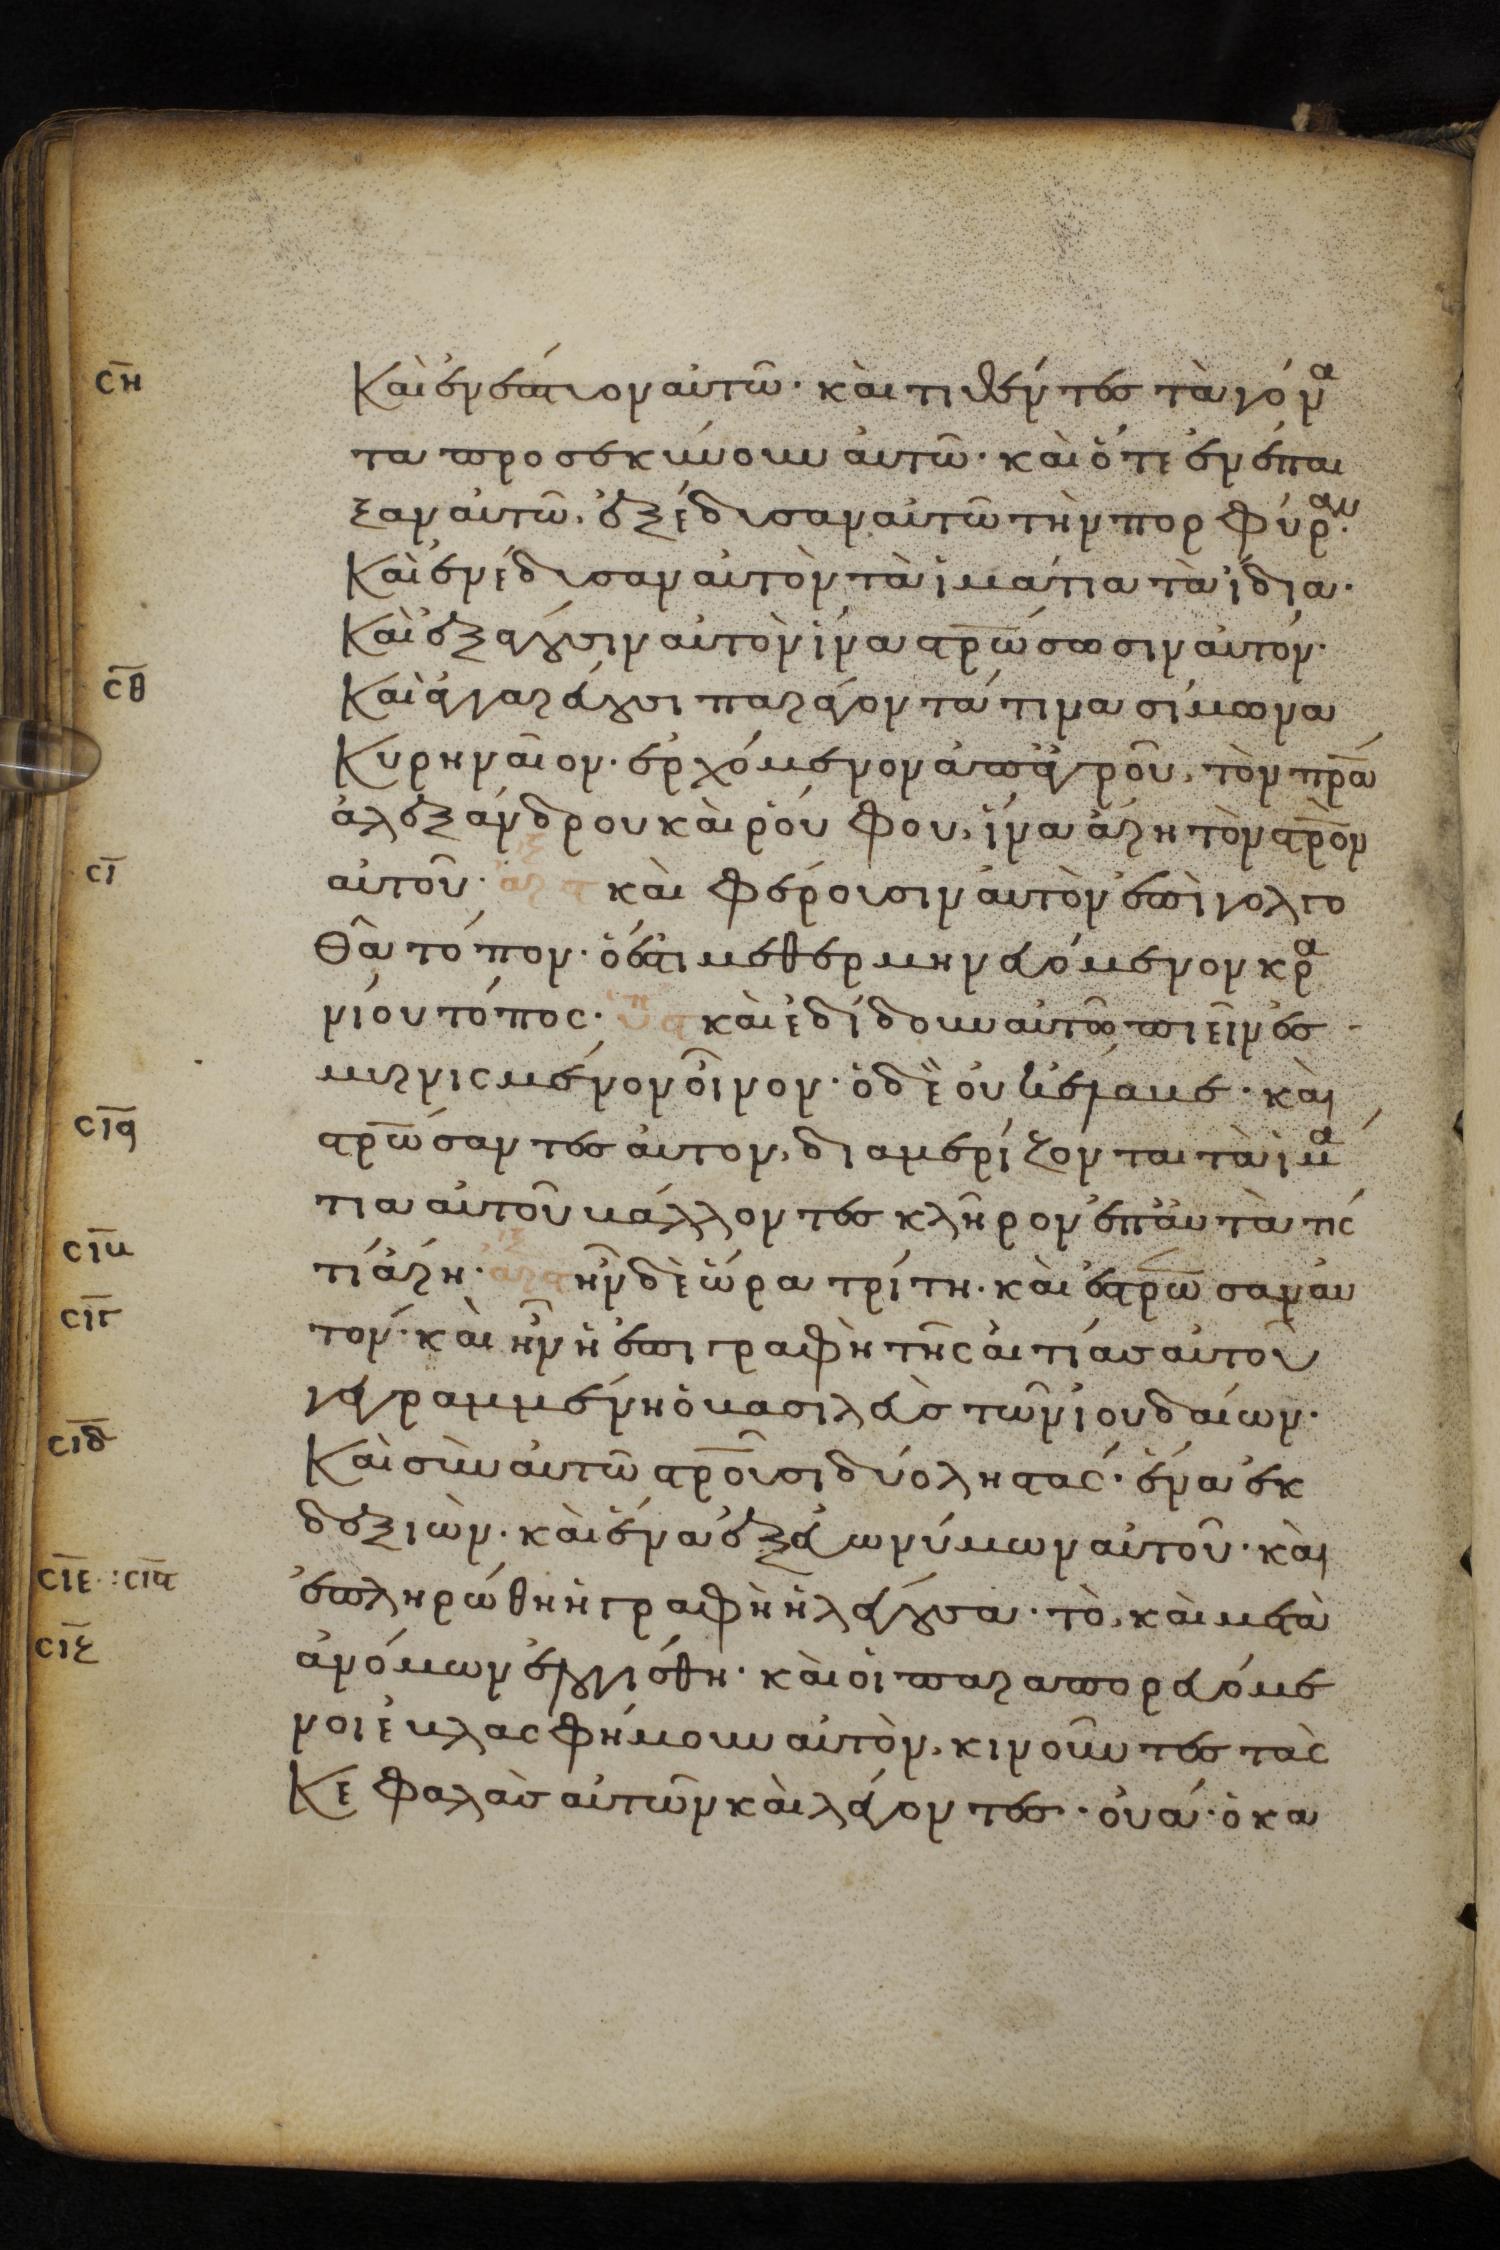 ϲη̅ Καὶ ἐνέπτυον αὐτῶ· καὶ τιθέντες τὰ γόνα
τα προσεκύνουν αὐτῶ· καὶ ὅτε ἐνέπαι
ξαν αὐτῶ, ἐξέδυσαν αὐτῶ τὴν πορφύραν·
Καὶ ἐνέδυσαν αὐτὸν τὰ ἱμάτια τὰ ἴδια·
Καὶ ἐξάγουσιν αὐτὸν ἵνα στρ̅ώσωσιν αὐτόν·
ϲθ̅ Καὶ ἀγγαρεύουσι παράγοντά τινα σίμωνα
Κυρηναῖον· ἐρχόμενον ἀπ' ἀγροῦ, τὸν πρ̅α
ἀλεξάνδρου καὶ ῥούφου, ἵνα ἄρη τὸν στρ̅ον
ϲι̅ αὐτοῦ· καὶ φέρουσιν αὐτὸν ἐπὶ γολγο
θᾶ τόπον· ὅ ἐστι μεθερμηνευόμενον κρα
νίου τόπος· καὶ ἐδίδουν αὐτῶ πιεῖν ἐσ
μυρνισμένον οἶνον· ὁ δὲ οὐκ ἔλαβε· καὶ
ϲια̅ στρ̅ώσαντες αὐτον, διαμερίζονται τὰ ἱμά
τια αὐτοῦ βάλλοντες κλῆρον ἐπ' αὐτὰ τίς
ϲιβ̅ τί ἄρη· ἦν δὲ ὥρα τρίτη· καὶ ἐστρ̅ωσαν αὐ
ϲιγ̅ τόν· καὶ ἦν ἡ ἐπιγραφὴ τῆς αἰτίας αὐτοῦ
γεγραμμένη ὁ βασιλεὺς τῶν ἰουδαίων·
ϲιδ̅ Καὶ σὺν αὐτῶ στρ̅οῦσι δύο ληστάς· ἕνα ἐκ
δεξιῶν· καὶ ἕνα ἐξ εὐωνύμων αὐτοῦ· καὶ
ϲιε̅ : ϲιϛ̅ ἐπληρώθη ἡ γραφὴ ἡ λέγουσα· τὸ, καὶ μετὰ
ϲιζ̅ ἀνόμων ἐλογίσθη· καὶ οἱ παραπορευόμε
νοι ἐβλασφήμουν αὐτὸν, κινοῦντες τὰς
Κεφαλὰς αὐτῶν καὶ λέγοντες· οὐά· ὁ κα